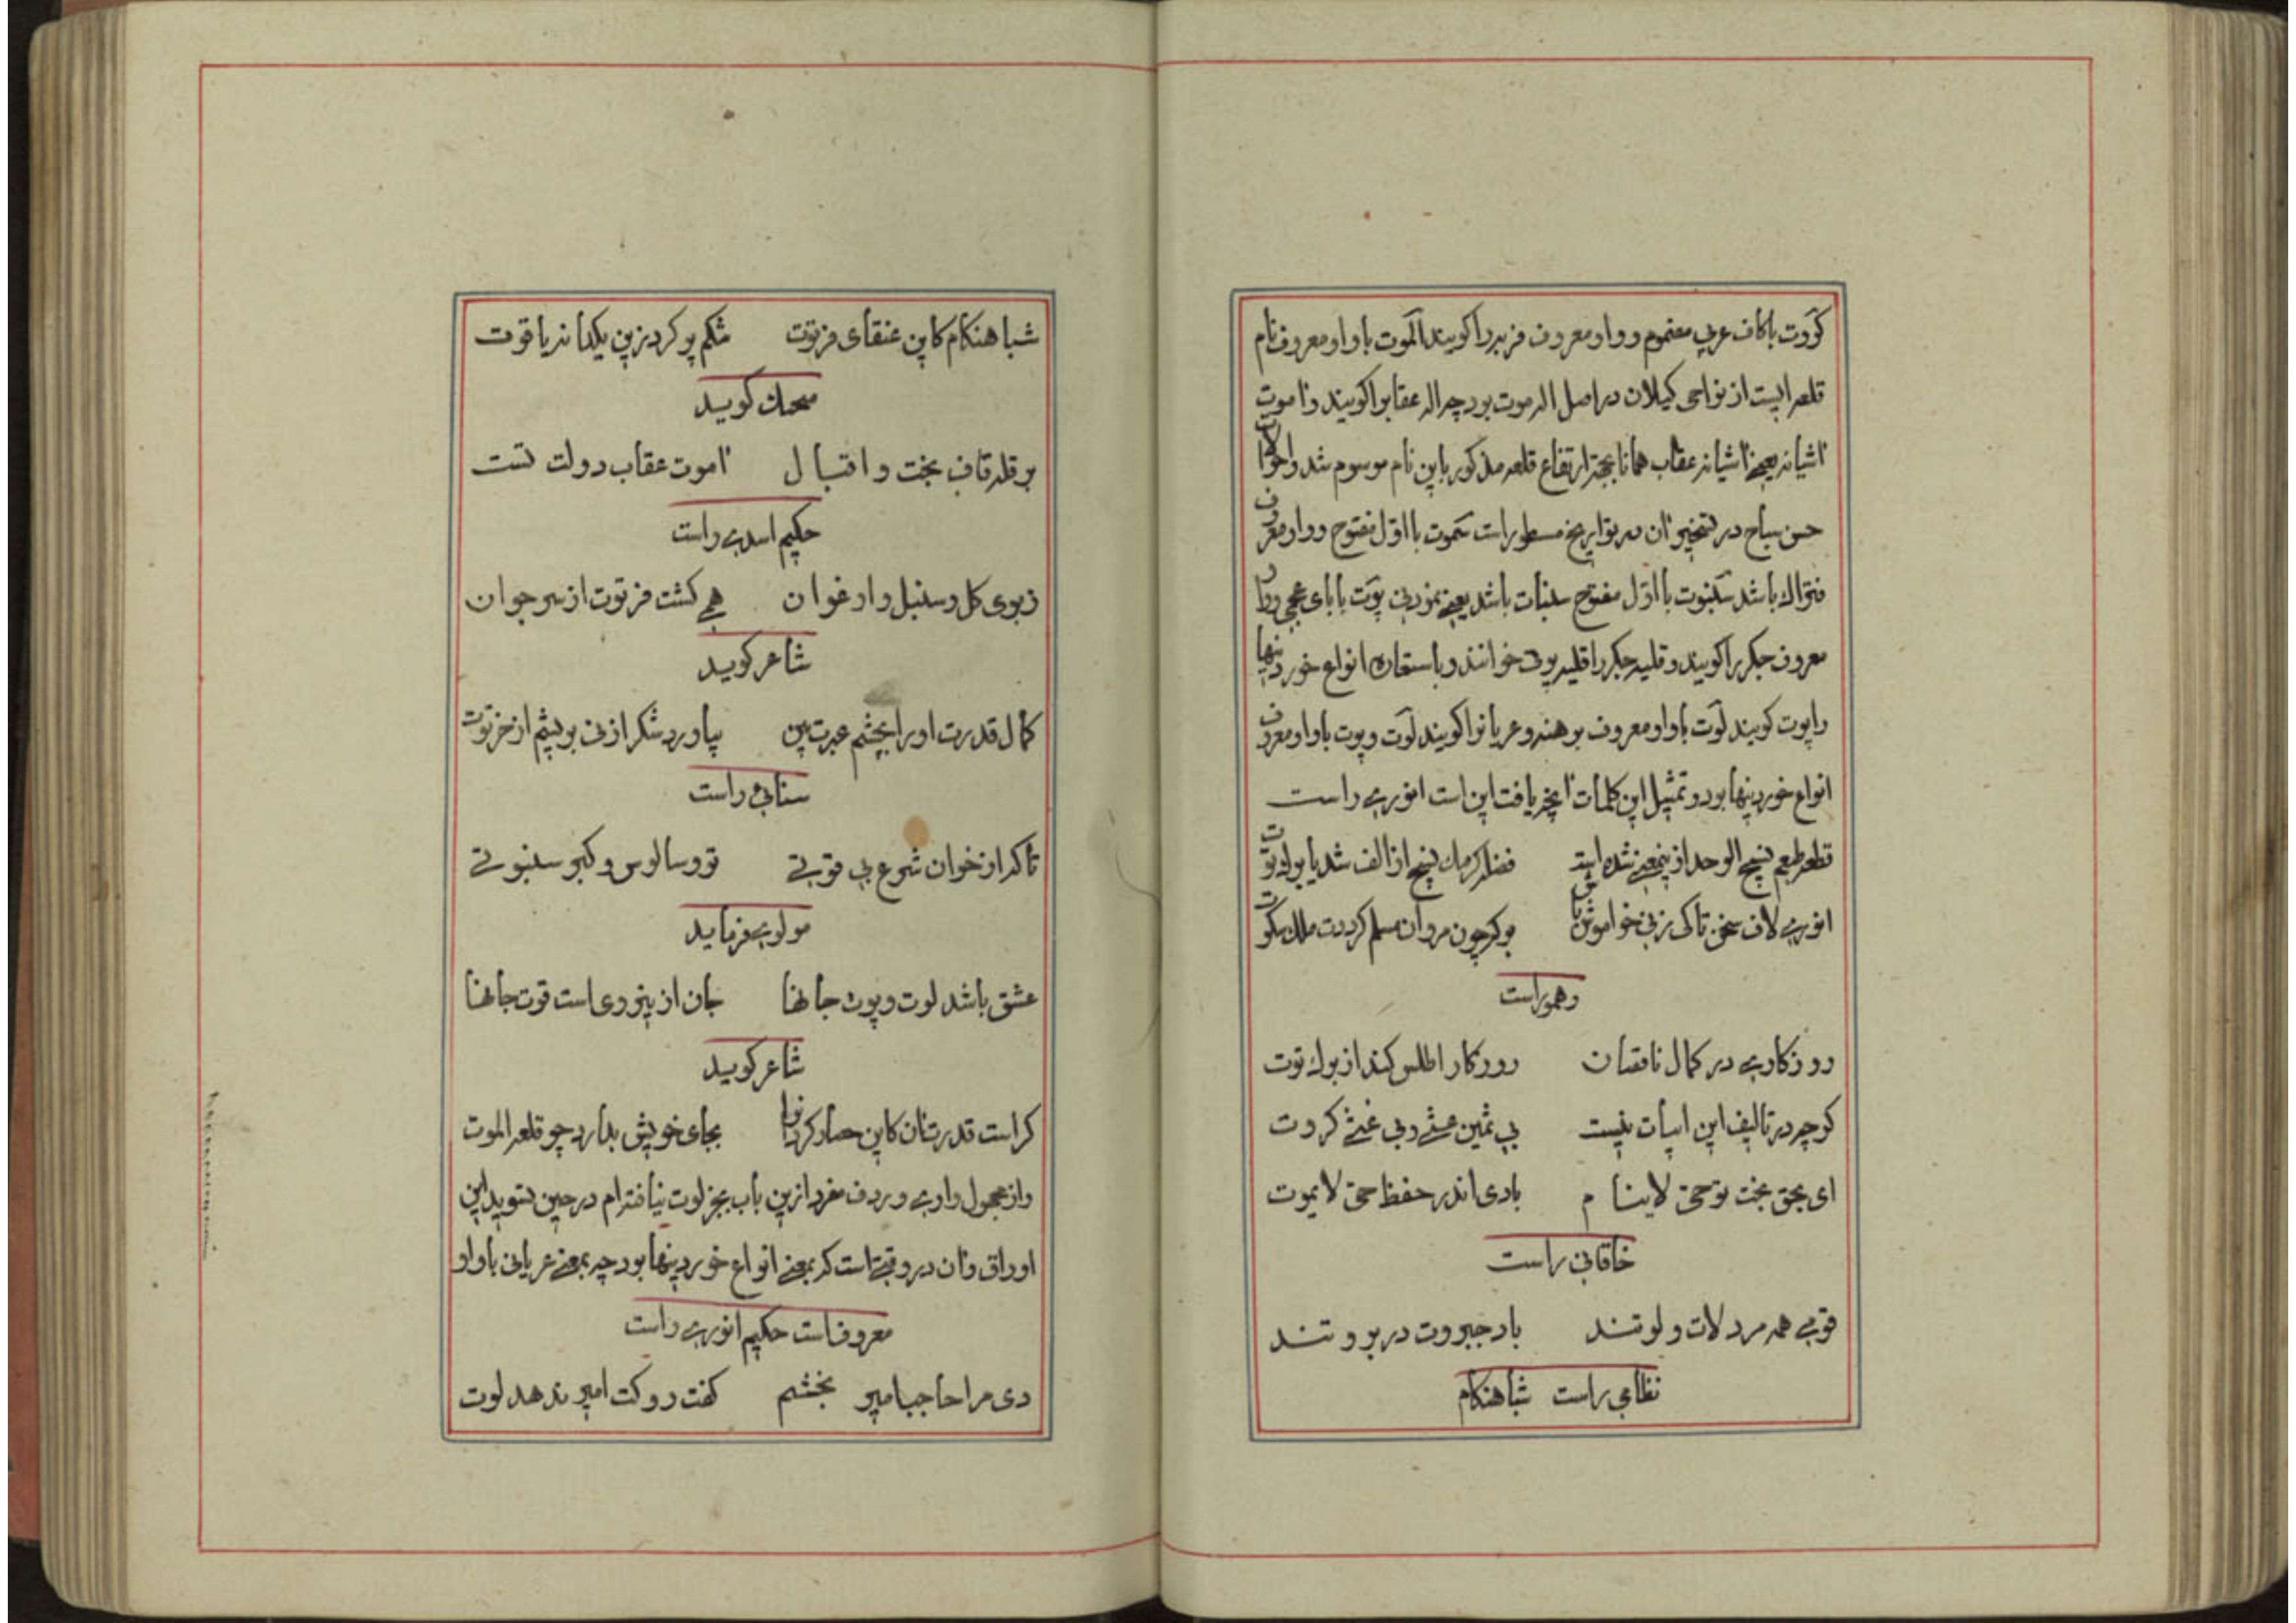 کروت باکاف عربی مضموم و واو معروف فربه را کویند الموت باواو معروف نام
قلعه ایست از نواحی کیلان در اصل اله موت بود چه اله عقابرا کویند و اموت
اشیانه یعنے اشیانه عقاب همانا بجهته ارتفاع قلعه مذکور باین نام موسوم شد واحوالات
حسن صباح در تسخیر ان در تواریخ مسطور است سموت بااول مفتوح و واو معروف
فتراک باشد سنبوت بااول مفتوح سنبات باشد یعنے پوت بابای عجمی و واو
معروف جکر را کویند و قلیه جکر را قلیه پوت خوانند و باستعاره انواع خوردینها
را پوت کویند لوت باواو معروف برهنه و عریانرا کویند لوت و پوت باواو معروف
انواع خوردینها بود و تمثیل این کلمات انچه یافت این است انوری راست
قطعه طبعم نسیج الوحد ازینمعنے شده است فضله کرمک نسیج از الف شد یا برک توت
انوری لاف سخن تاکی زنی خواموش باش بوکه چون مردان مسلم کرددت ملک سکوت
وهموراست
روزکاری در کمال ناقصان روزکار اطلس کند از برک توت
کرچه در تالیف این ابیات نیست بی ثمین عشے و بی غثے کروت
ای بحق بخت تو حی لاینام بادی اندر حفظ حی لایموت
خاقانی راست
قومی همه مرد لات و لوتند باد جبروت در بروتند
نظامی راست شباهنکام
شباهنکام کاین عنقای فرتوت شکم پر کرد زین یکدانه یاقوت
محمک کوید
بر قله قاف بخت و اقبال اموت عقاب دولت تست
حکیم اسدی راست
زبوی کل و سنبل و ارغوان همی کشت فرتوت از سر جوان
شاعر کوید
کمال قدرت او را بچشم عبرت بین بیاورد شکر از نی بریشم از خرتوت
سنایی راست
تا که از خوان شرع بی قوتی تو و سالوس و کبر سنبوتے
مولوی فرماید
عشق باشد لوت و پوت جانها جان ازینروی است قوت جانها
شاعر کوید
کراست قدرت ان کاین حصار کردانرا بجای خویش بدارد چو قلعه الموت
و از مجهول واوی و ردف مفرد ازین باب بجز لوت نیافته ام در حین تسوید این
اوراق و ان در وقتے است که بمعنے انواع خوردینها بود چه بمعنے عریانی باواو
معروف است حکیم انوری راست
دی مرا حاجبا میر بخشم کفت روکت امیر ندهد لوت